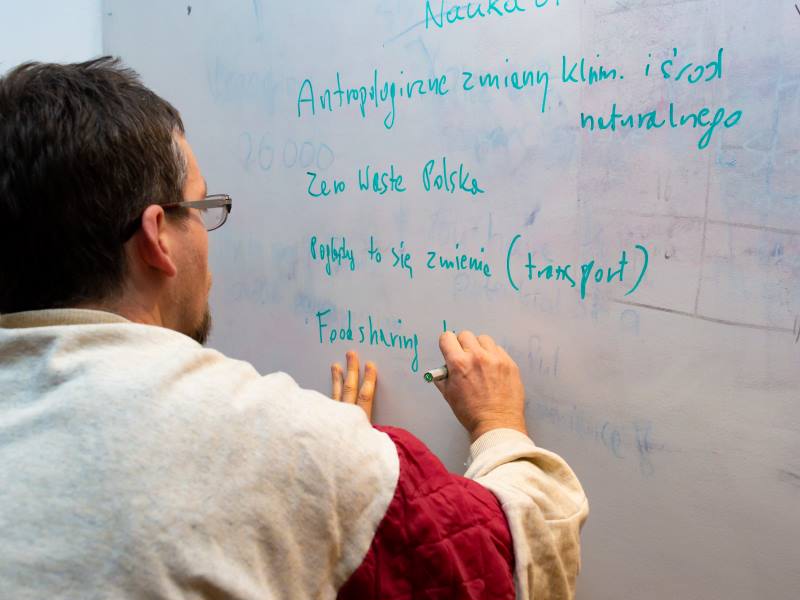 Nauka o
Antropologiczne zmiany klim. i środ
naturalnego
26 000
Zero Waste Polska
Poglądy to się zmienia (transport)
Foodsharing